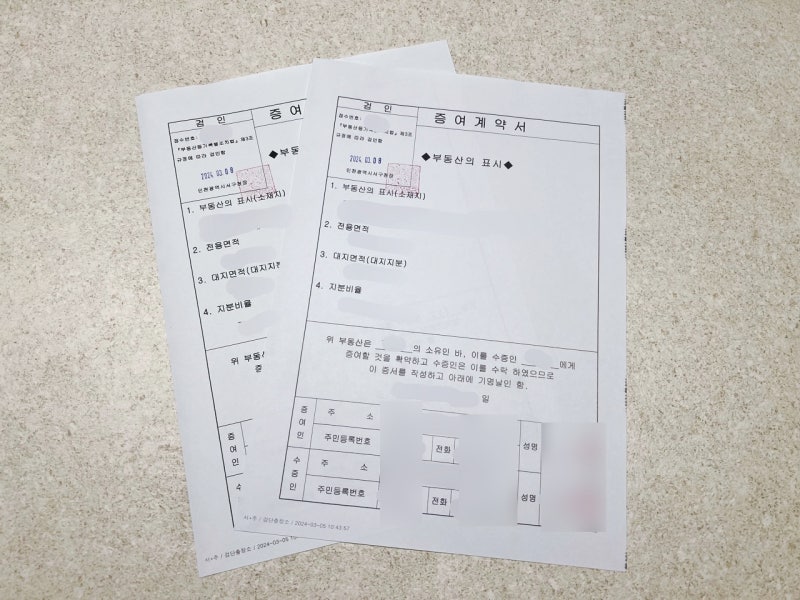 검 인
접수번호:
『부동산등기
규정에 따라 검인함
2024. 03. 0 8
인천광역시서구청장
증 여
◆부동
1. 부동산의 표시(소재지)
2. 전용면적
3. 대지면적(대지지분
4. 지분비율
위 부동산
증
증
여
인
수
서*주 / 검단출장소 / 2024-03-05 10
검 인
접수번호:
『부동산등기 제3조
규정에 따라 검인함
2024. 03. 0 8
인천광역시서구청장
증 여 계 약 서
◆부동산의 표시◆
1. 부동산의 표시(소재지)
2. 전용면적
3. 대지면적(대지지분)
4. 지분비율
위 부동산은 의 소유인 바, 이를 수증인 에게
증여할 것을 확약하고 수증인은 이를 수락 하였으므로
이 증서를 작성하고 아래에 기명날인 함.
일
증여인
주 소
주민등록번호 전화 성명
수증인
주 소
주민등록번호 전화 성명
서*주 / 검단출장소 / 2024-03-05 10:43:57